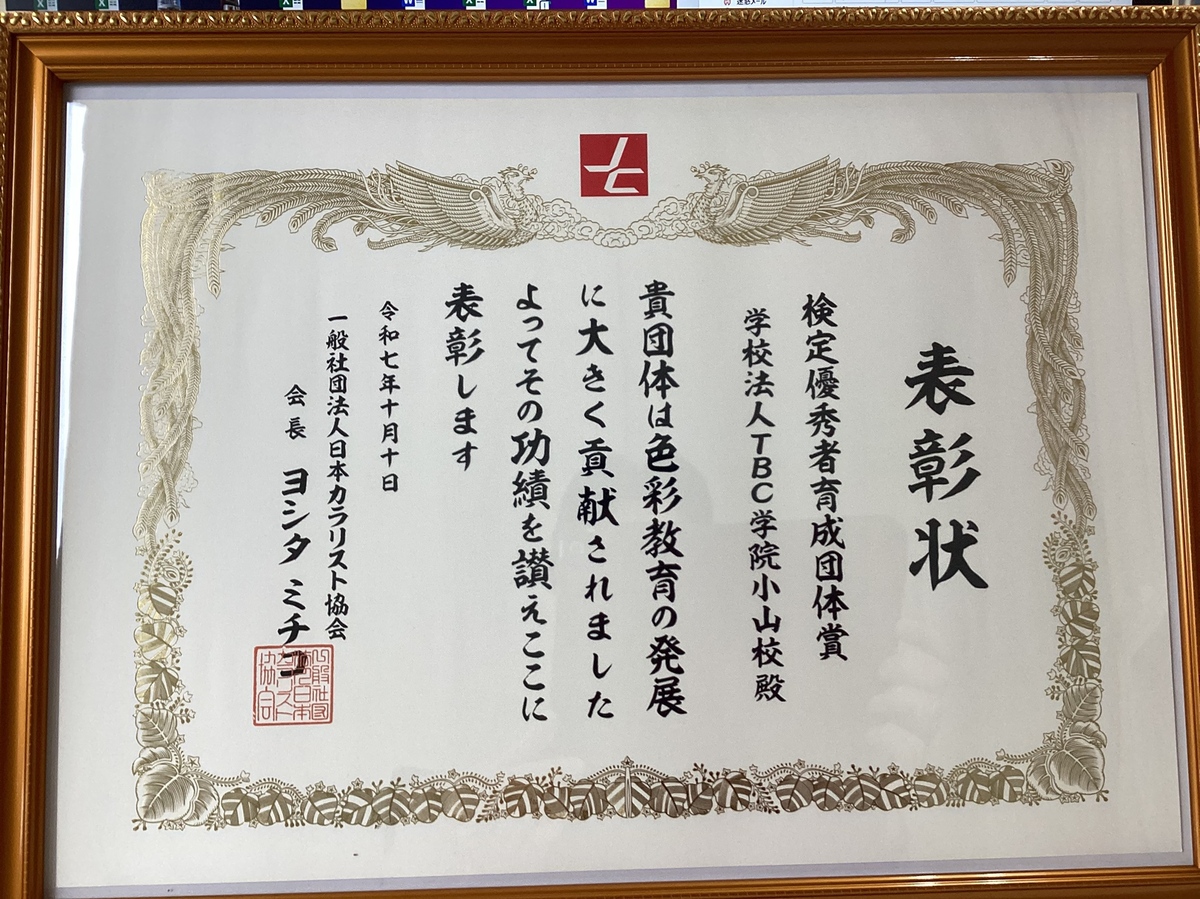 表彰状
検定優秀者育成団体賞
学校法人TBC学院小山校殿
貴団体は色彩教育の発展
に大きく貢献されました
よってその功績を讃えここに
表彰します
令和七年十月十日
一般社団法人日本カラリスト協会
会長 ヨシタ ミチコ
一般社団
法人日本
カラリスト
協会
迷惑メール